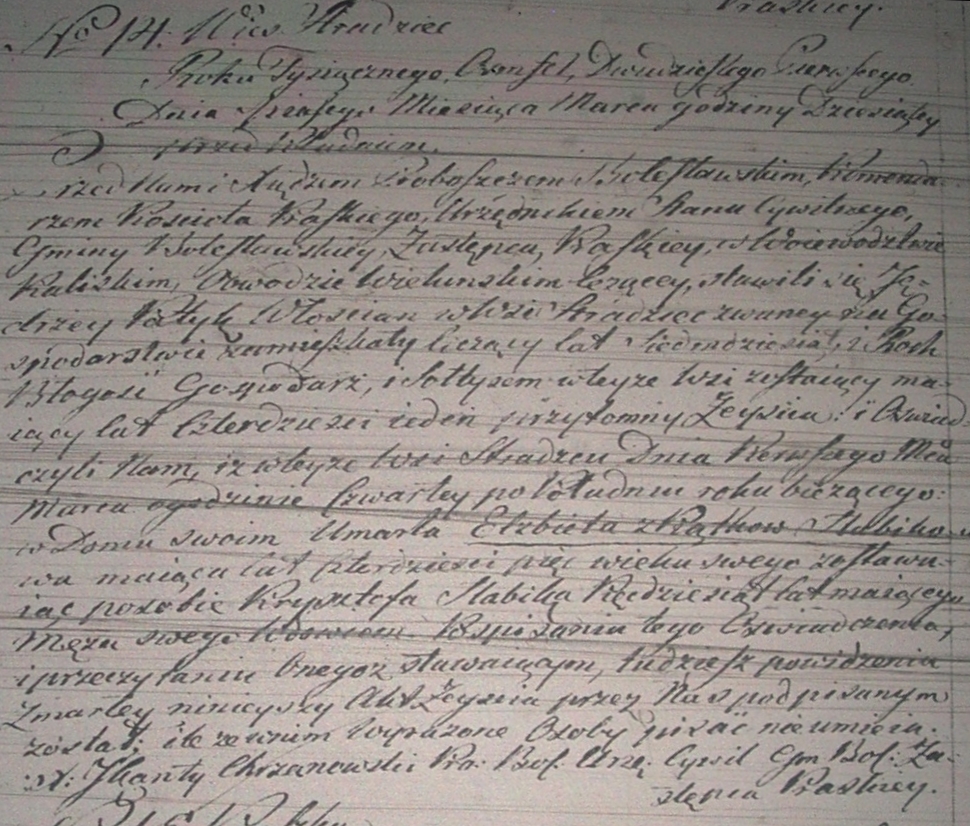 Praskiey.
No 14. Wies Stradziec
Roku Tysiącznego, Osmset, Dwudziestego Pierwszego
Dnia Miesiąca Marca godziny Dziewiątey
przed Południem.
Przed Nami Xiędzem Proboszczem Bolesławskim, Kommenda-
rzem Kościoła Praskiego, Urzędnikiem Stanu Cywilnego,
Gminy Bolesławskiey, Zastępcą Praskiey, w Woiewodztwie
Kaliskim, Obwodzie Wielunskim leżącey, stawili się Ję-
drzey Włoscian w Wsi Stradziec zwaney na Go-
spodarstwie zamieszkały liczący lat Siedmdziesiąt, i Roch
Błogosz Gospodarz, i Sołtysem w teyze Wsi zostaiący ma-
iący lat Czterdziesci ieden przytomny Zeyscia: i Oswiad-
czyli Nam, iz w teyze Wsi Stradzcu Dnia Pierwszego Mca
Marca o godzinie Czwartey po Południu roku biezącego:
w Domu swoim Umarła Elzbieta z Kątkow Słabiko-
wa maiąca lat Czterdziesci pięć wieku swego zostawu-
iąc po sobie Krysztofa Słabika lat maiącego
Męza swego Po spisaniu tego Oswiadczenia,
i przeczytaniu Onegoz stawaiącym, tudziesz powidzeniu
Zmarłey ninieyszy Akt Zeyscia przez Nas podpisanym
został: ile ze w nim wyrażone Osoby pisać nie umieią.
X: JKanty Chrzanowski Pro: Bol: Urzę: Cywil Gm Bol: Za-
stępca Praskiey.